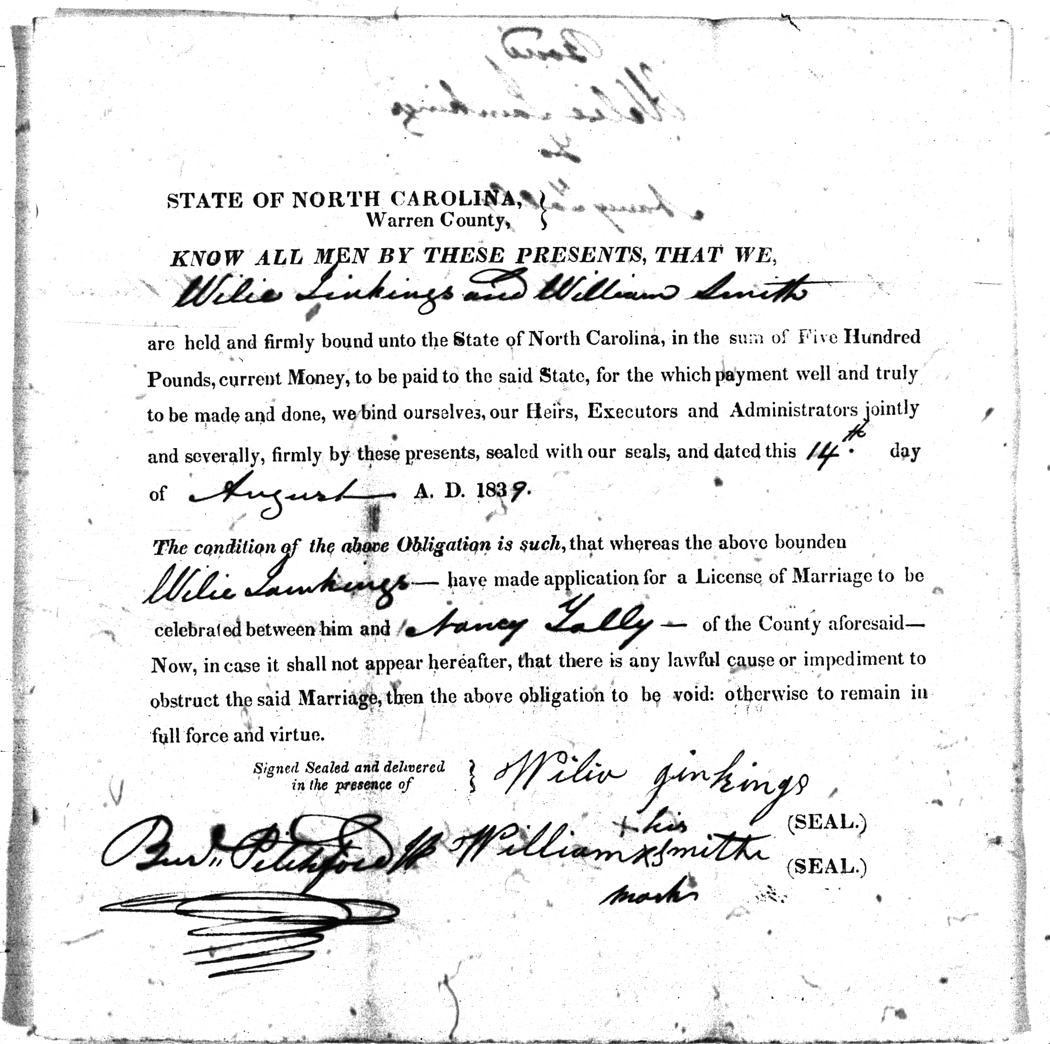 STATE OF NORTH CAROLINA,
Warren County,
KNOW ALL MEN BY THESE PRESENTS, THAT WE,
Wilie Jinkings and William Smith
are held and firmly bound unto the State of North Carolina, in the sum of Five Hundred
Pounds, current Money, to be paid to the said State, for the which payment well and truly
to be made and done, we bind ourselves, our Heirs, Executors and Administrators jointly
and severally, firmly by these presents, sealed with our seals, and dated this 14th. day
of August A. D. 1839.
The condition of the above Obligation is such, that whereas the above bounden
Wilie Jainkings — have made application for a License of Marriage to be
celebrated between him and Nancy Tally — of the County aforesaid—
Now, in case it shall not appear hereafter, that there is any lawful cause or impediment to
obstruct the said Marriage, then the above obligation to be void: otherwise to remain in
full force and virtue.
Signed Sealed and delivered
in the presence of
Wiliv ginkings
his (SEAL.)
Pitchford William x Smith (SEAL.)
mark